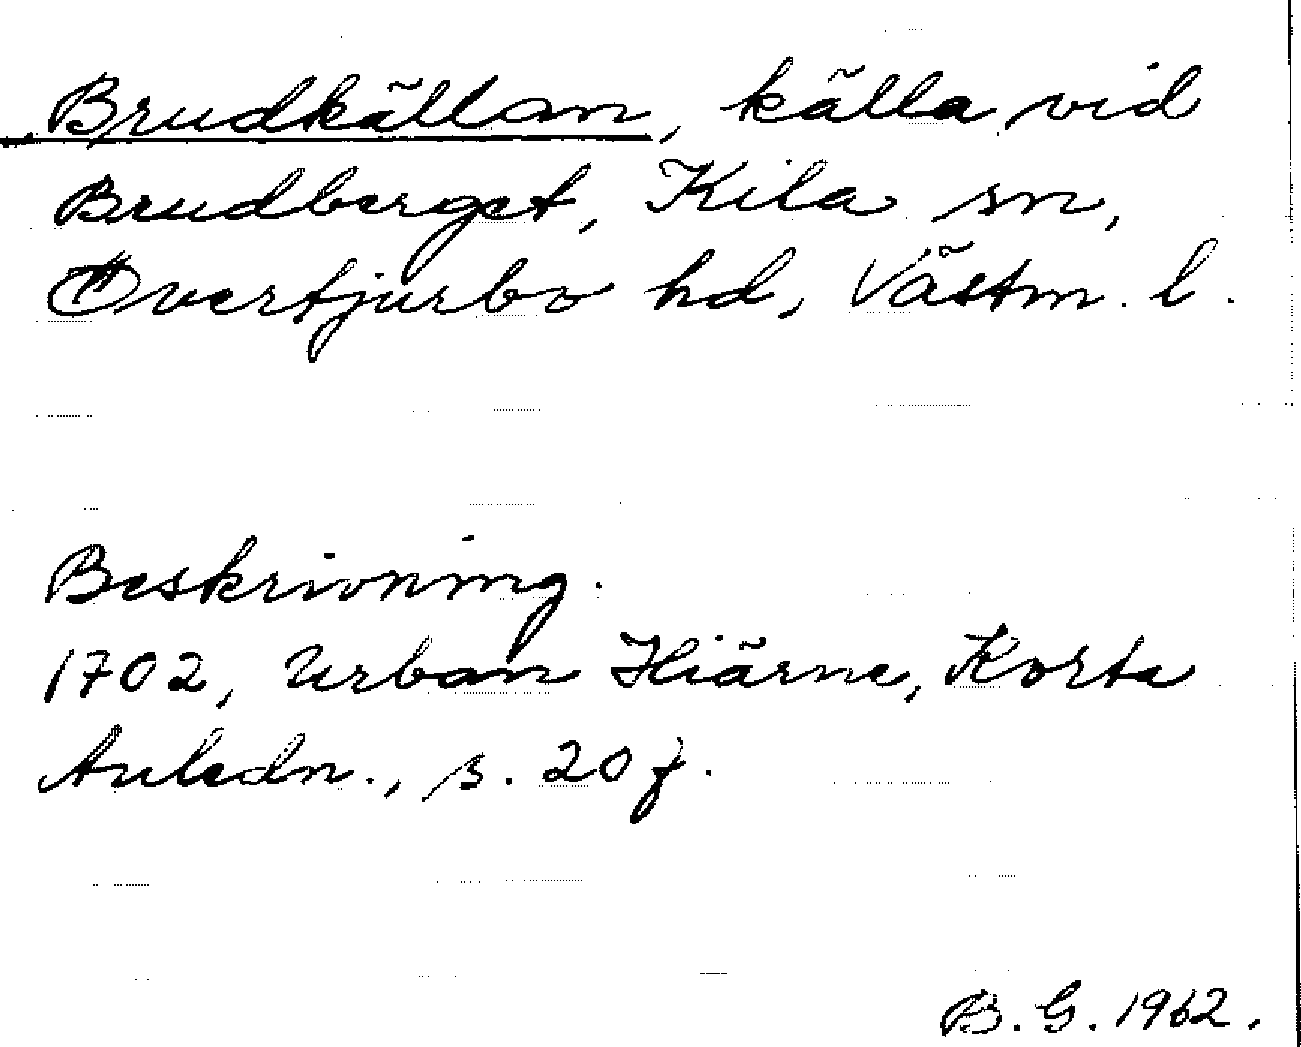 Brudkällan, källa vid
Brudberget, Kila sn,
Övertjurbo hd, Västm. l.
Beskrivning.
1702, Urban Hiärne, Korta
Anledn., s. 20 f.
B. G. 1962.